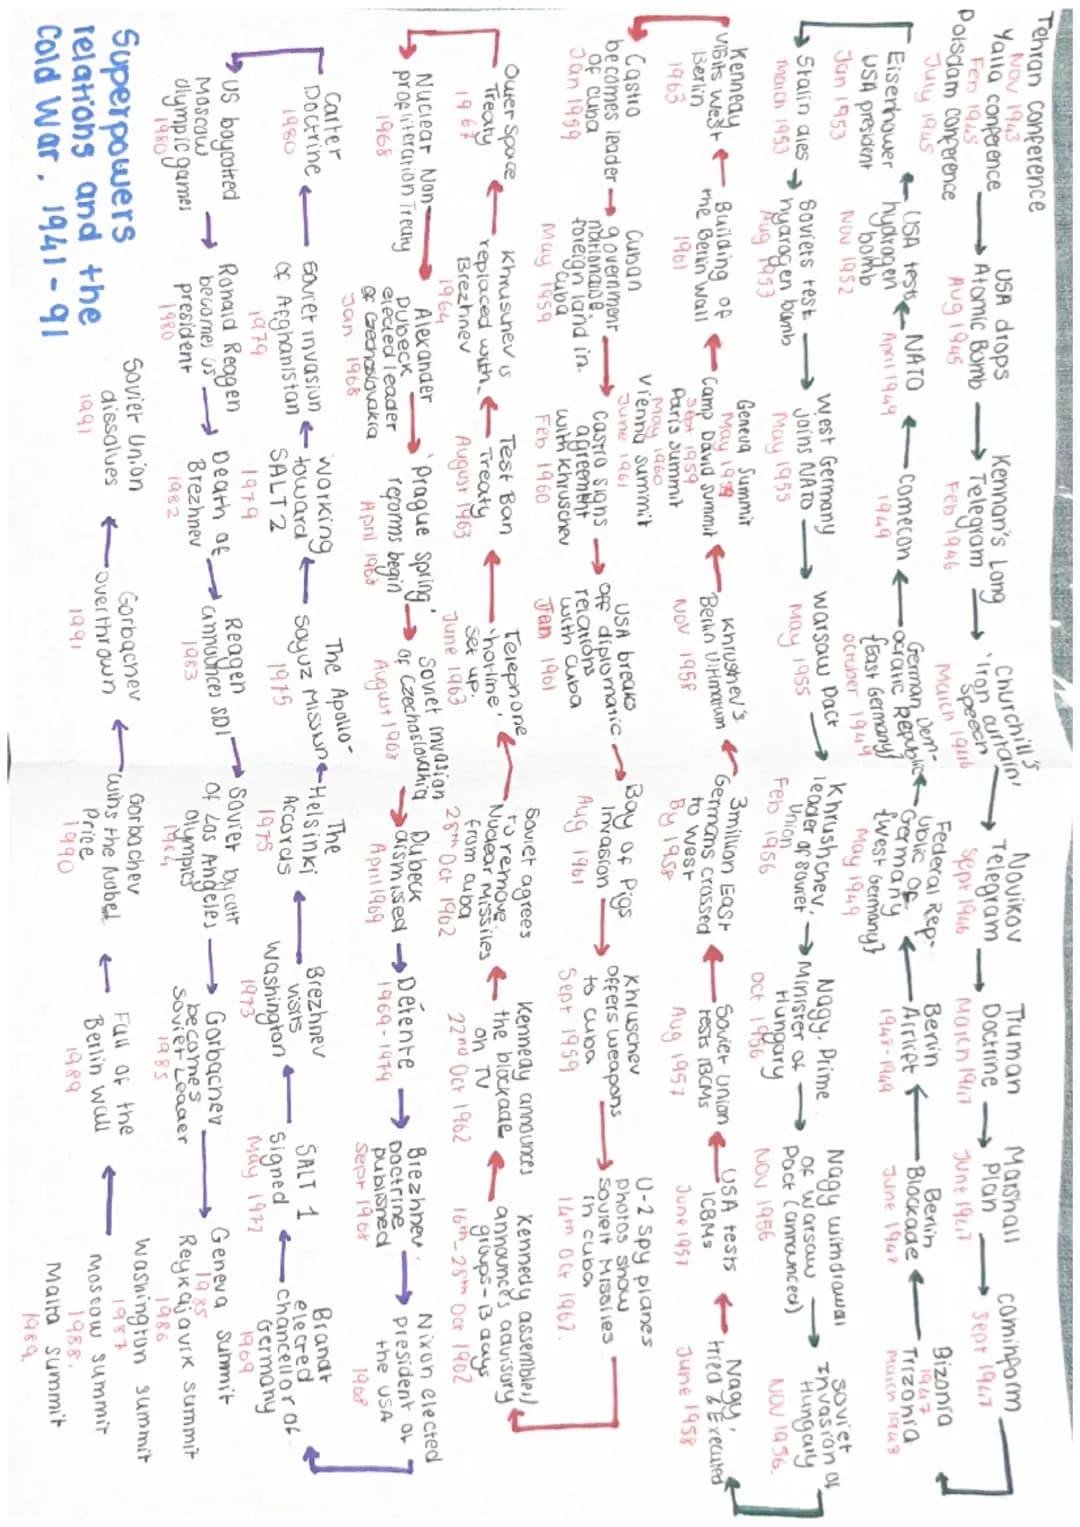 Superpowers
relations and the
Cold War, 1941-91
Tehran conference
Nov 1943
Yalta conference
Feb 1945
Potsdam conference
July 1945
USA drops
Atomic Bomb
Aug 1945
Kennan's Long
Telegram
Feb 1946
Churchill's
'Iron curtain'
speech
March 1946
Novikov
Telegram
Sept 1946
Truman
Doctrine
March 1947
Marshall
Plan
June 1947
Cominform
Sept 1947
Bizonia
1947
Trizonia
March 1948
Berlin
Blockade
June 1948
Berlin
Airlift
1948-1949
Federal Rep-
ublic of
Germany
{West Germany}
May 1949
German Dem-
ocratic Republic
{East Germany}
October 1949
Comecon
1949
NATO
April 1949
USA tests
hydrogen
bomb
Nov 1952
Eisenhower
USA president
Jan 1953
Stalin dies
March 1953
Soviets test
hydrogen bomb
Aug 1953
West Germany
joins NATO
May 1955
Warsaw Pact
May 1955
Khrushchev,
leader of Soviet
Union
Feb 1956
Nagy, Prime
Minister of
Hungary
Oct 1956
Nagy withdrawal
of Warsaw
Pact (announced)
Nov 1956
Soviet
Invasion of
Hungary
Nov 1956.
Nagy,
tried & Executed
June 1958
USA tests
ICBMs
June 1957
Soviet Union
tests IBCMs
Aug 1957
3million East
Germans crossed
to West
By 1958
Khrushev's
Berlin Ultimatum
Nov 1958
Geneva Summit
May 1959
Camp David Summit
Sept 1959
Paris Summit
May 1960
Vienna Summit
June 1961
Building of
the Berlin Wall
1961
Kennedy
visits West
Berlin
1963
Castro
becomes leader
of Cuba
Jan 1959
Cuban
government
nationalise
foreign land in
Cuba
May 1959
Castro signs
agreement
with Khruschev
Feb 1960
USA breaks
off diplomatic
relations
with Cuba
Jan 1961
Bay of Pigs
Invasion
Aug 1961
Khruschev
offers weapons
to Cuba
Sept 1959
U-2 spy planes
photos show
Soviet Missiles
in Cuba
14th Oct 1962.
Kennedy assembles)
announces advisory
groups-13 days
16th-28th Oct 1962
Kennedy announces
the blockade
on TV
22nd Oct 1962
Soviet agrees
to remove
Nuclear Missiles
from Cuba
28th Oct 1962
Telephone
'hotline'
set up.
June 1963
Test Ban
Treaty
August 1963
Khrushev is
replaced with
Brezhnev
1964
Outer Space
Treaty
1967
Nuclear Non-
proliferation Treaty
1968
Alexander
Dubeck
elected leader
of Czechoslovakia
Jan 1968
'Prague Spring'
reforms begin
April 1968
Soviet Invasion
of Czechoslovakia
August 1968
Dubeck
dismissed
April 1969
Détente
1969-1979
Brezhnev
Doctrine
published
Sept 1968
Nixon elected
president of
the USA
1968
Brandt
elected
chancellor of
Germany
1969
SALT 1
Signed
May 1972
Brezhnev
visits
Washington
1973
The
Helsinki
Accords
1975
The Apollo-
Soyuz Mission
1975
Working
toward
SALT 2
1979
Soviet invasion
of Afghanistan
1979
Carter
Doctrine
1980
US boycotted
Moscow
olympic games
1980
Ronald Reagen
becomes US
president
1980
Death of
Brezhnev
1982
Reagen
announces SDI
1983
Soviet bycott
of Los Angeles
Olympics
1984
Gorbachev
becomes
Soviet Leader
1985
Geneva Summit
1985
Reykajavik Summit
1986
Washington Summit
1987
Moscow Summit
1988.
Malta Summit
1989.
Fall of the
Berlin Wall
1989
Gorbachev
wins the Nobel
Price
1990
Gorbachev
overthrown
1991
Soviet Union
dissolves
1991